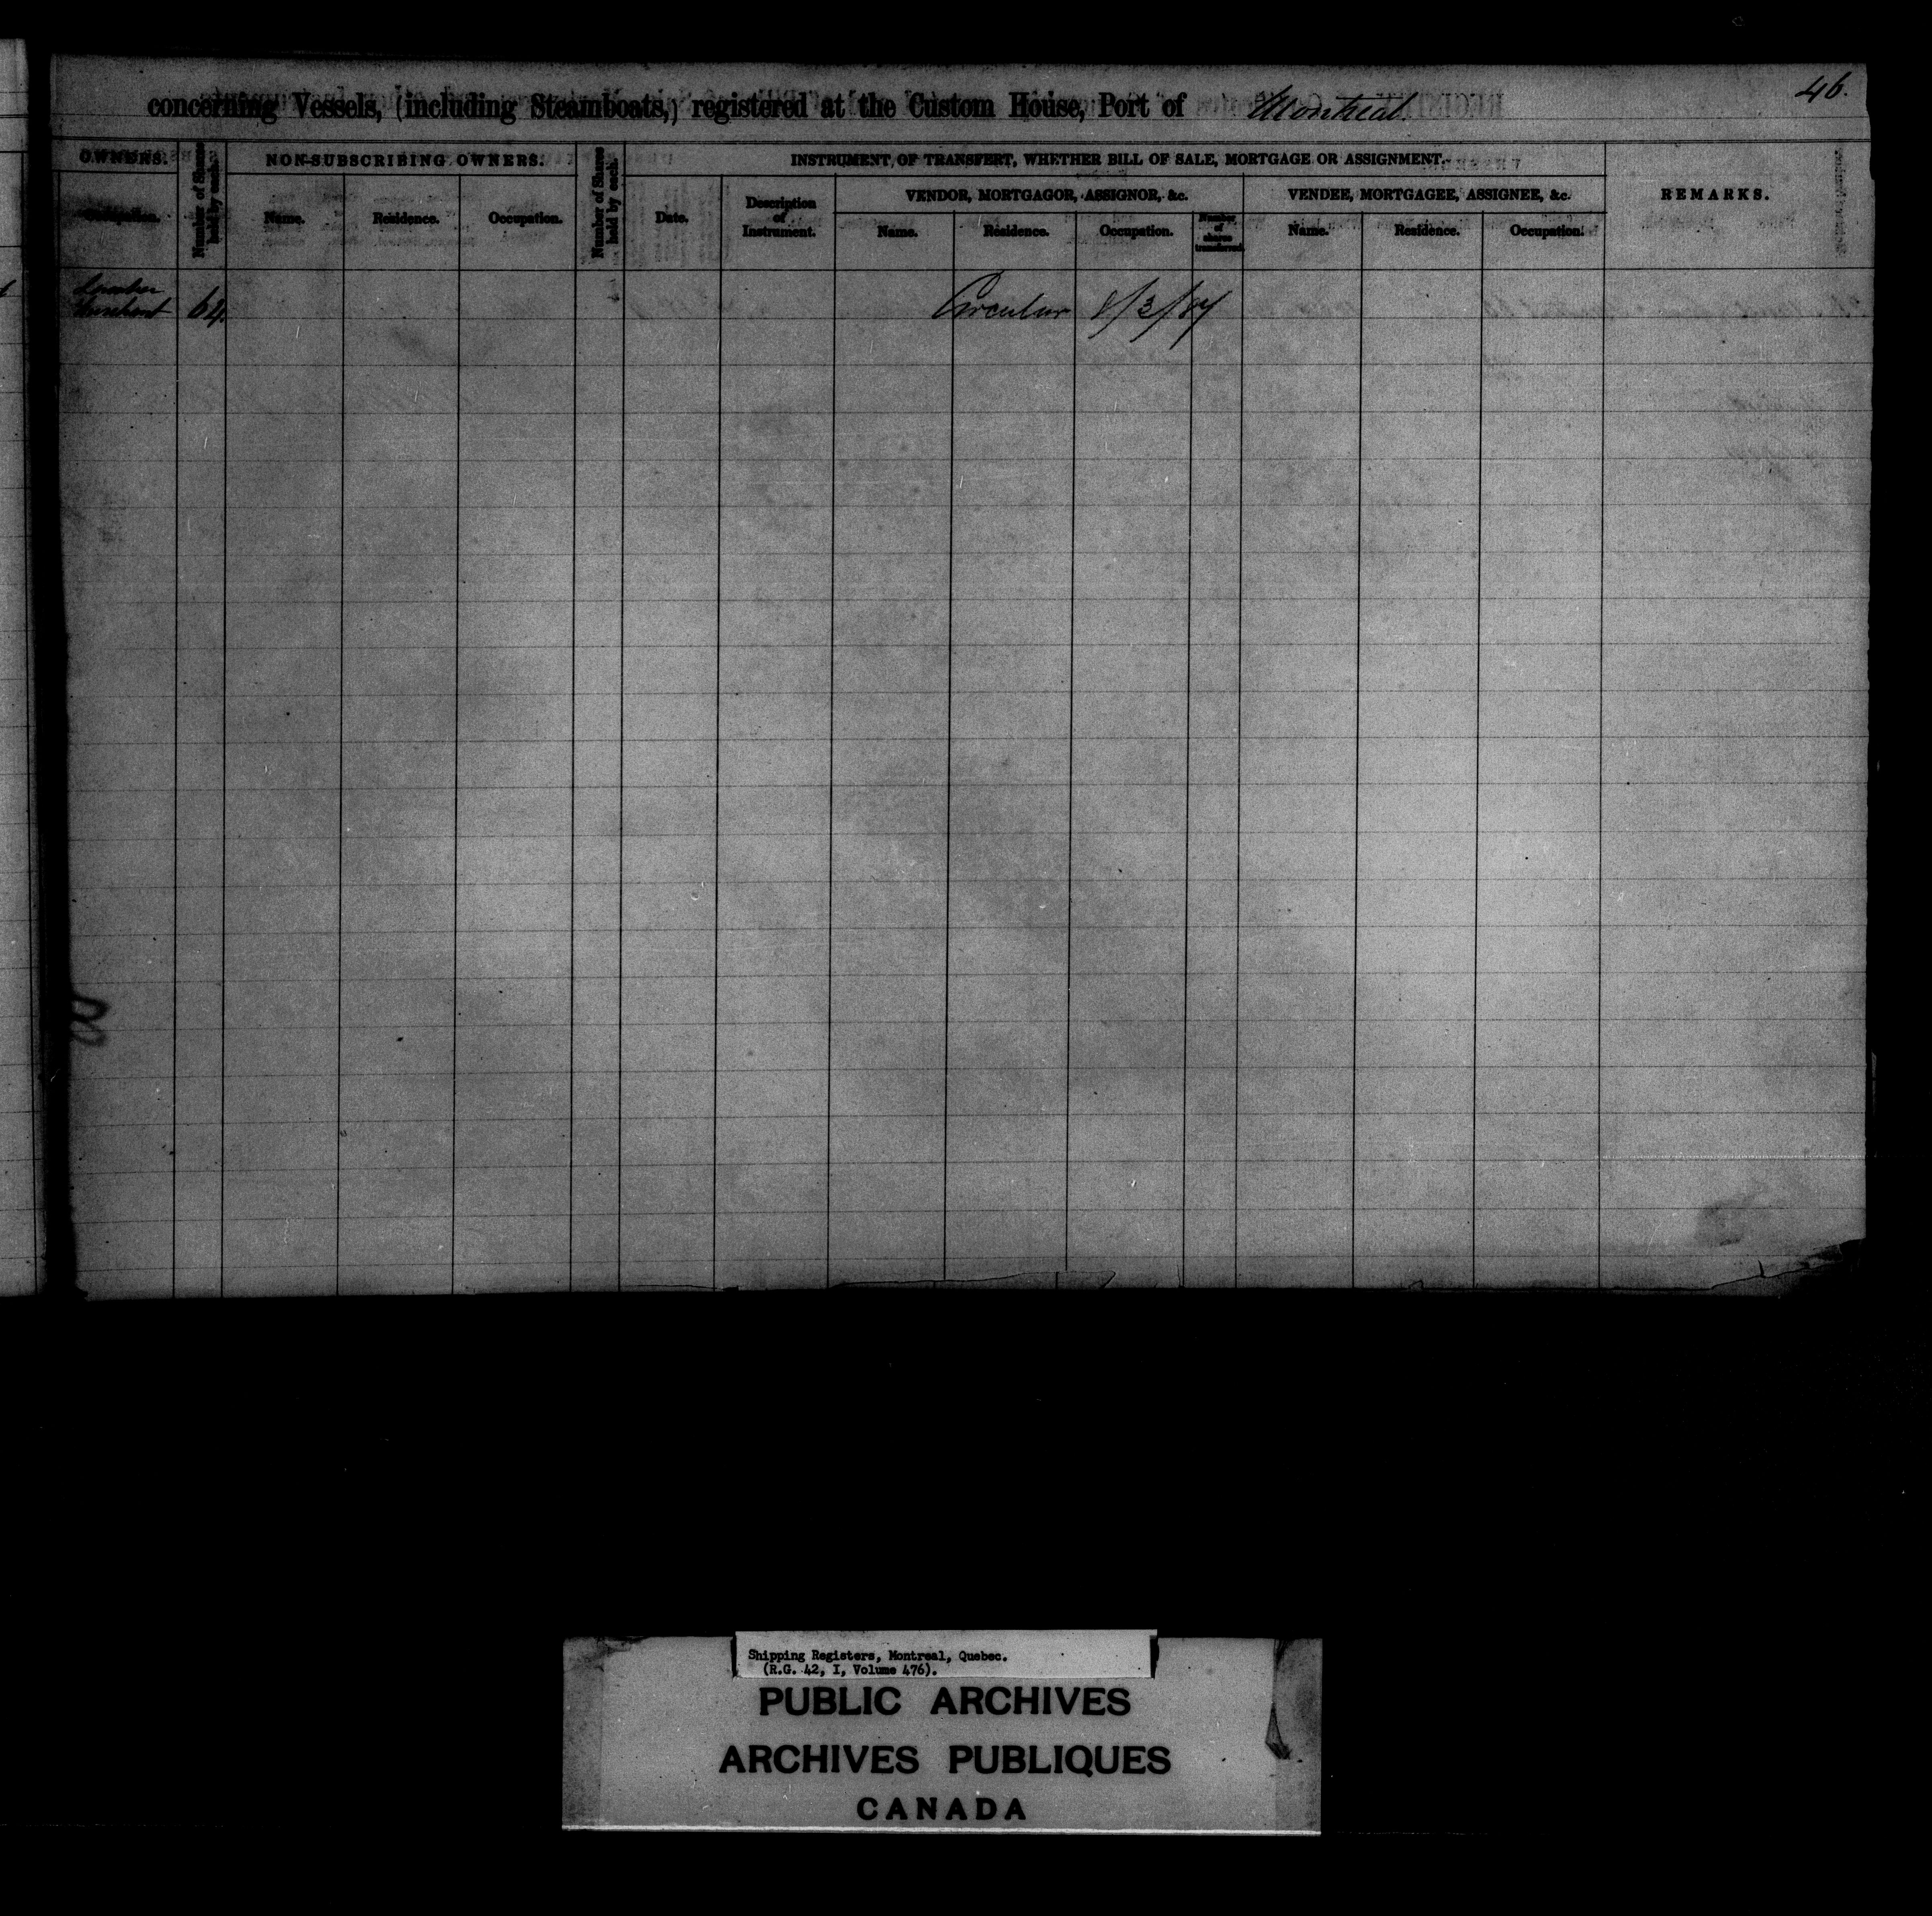 46.
concerning Vessels, (including Steamboats,) registered at the Custom House, Port of Montreal
OWNERS.
Occupation.
Number of Shares held by each.
NON-SUBSCRIBING OWNERS.
Name.
Residence.
Occupation.
Number of Shares held by each.
INSTRUMENT OF TRANSFERT, WHETHER BILL OF SALE, MORTGAGE OR ASSIGNMENT.
Date.
Description
of
Instrument.
VENDOR, MORTGAGOR, ASSIGNOR, &c.
Name.
Residence.
Occupation.
Number
of
shares
transferred.
VENDEE, MORTGAGEE, ASSIGNEE, &c.
Name.
Residence.
Occupation.
REMARKS.
Lumber
Merchant 64.
Circular 8/3/87
Shipping Registers, Montreal, Quebec.
(R.G. 42, I, Volume 476).
PUBLIC ARCHIVES
ARCHIVES PUBLIQUES
CANADA